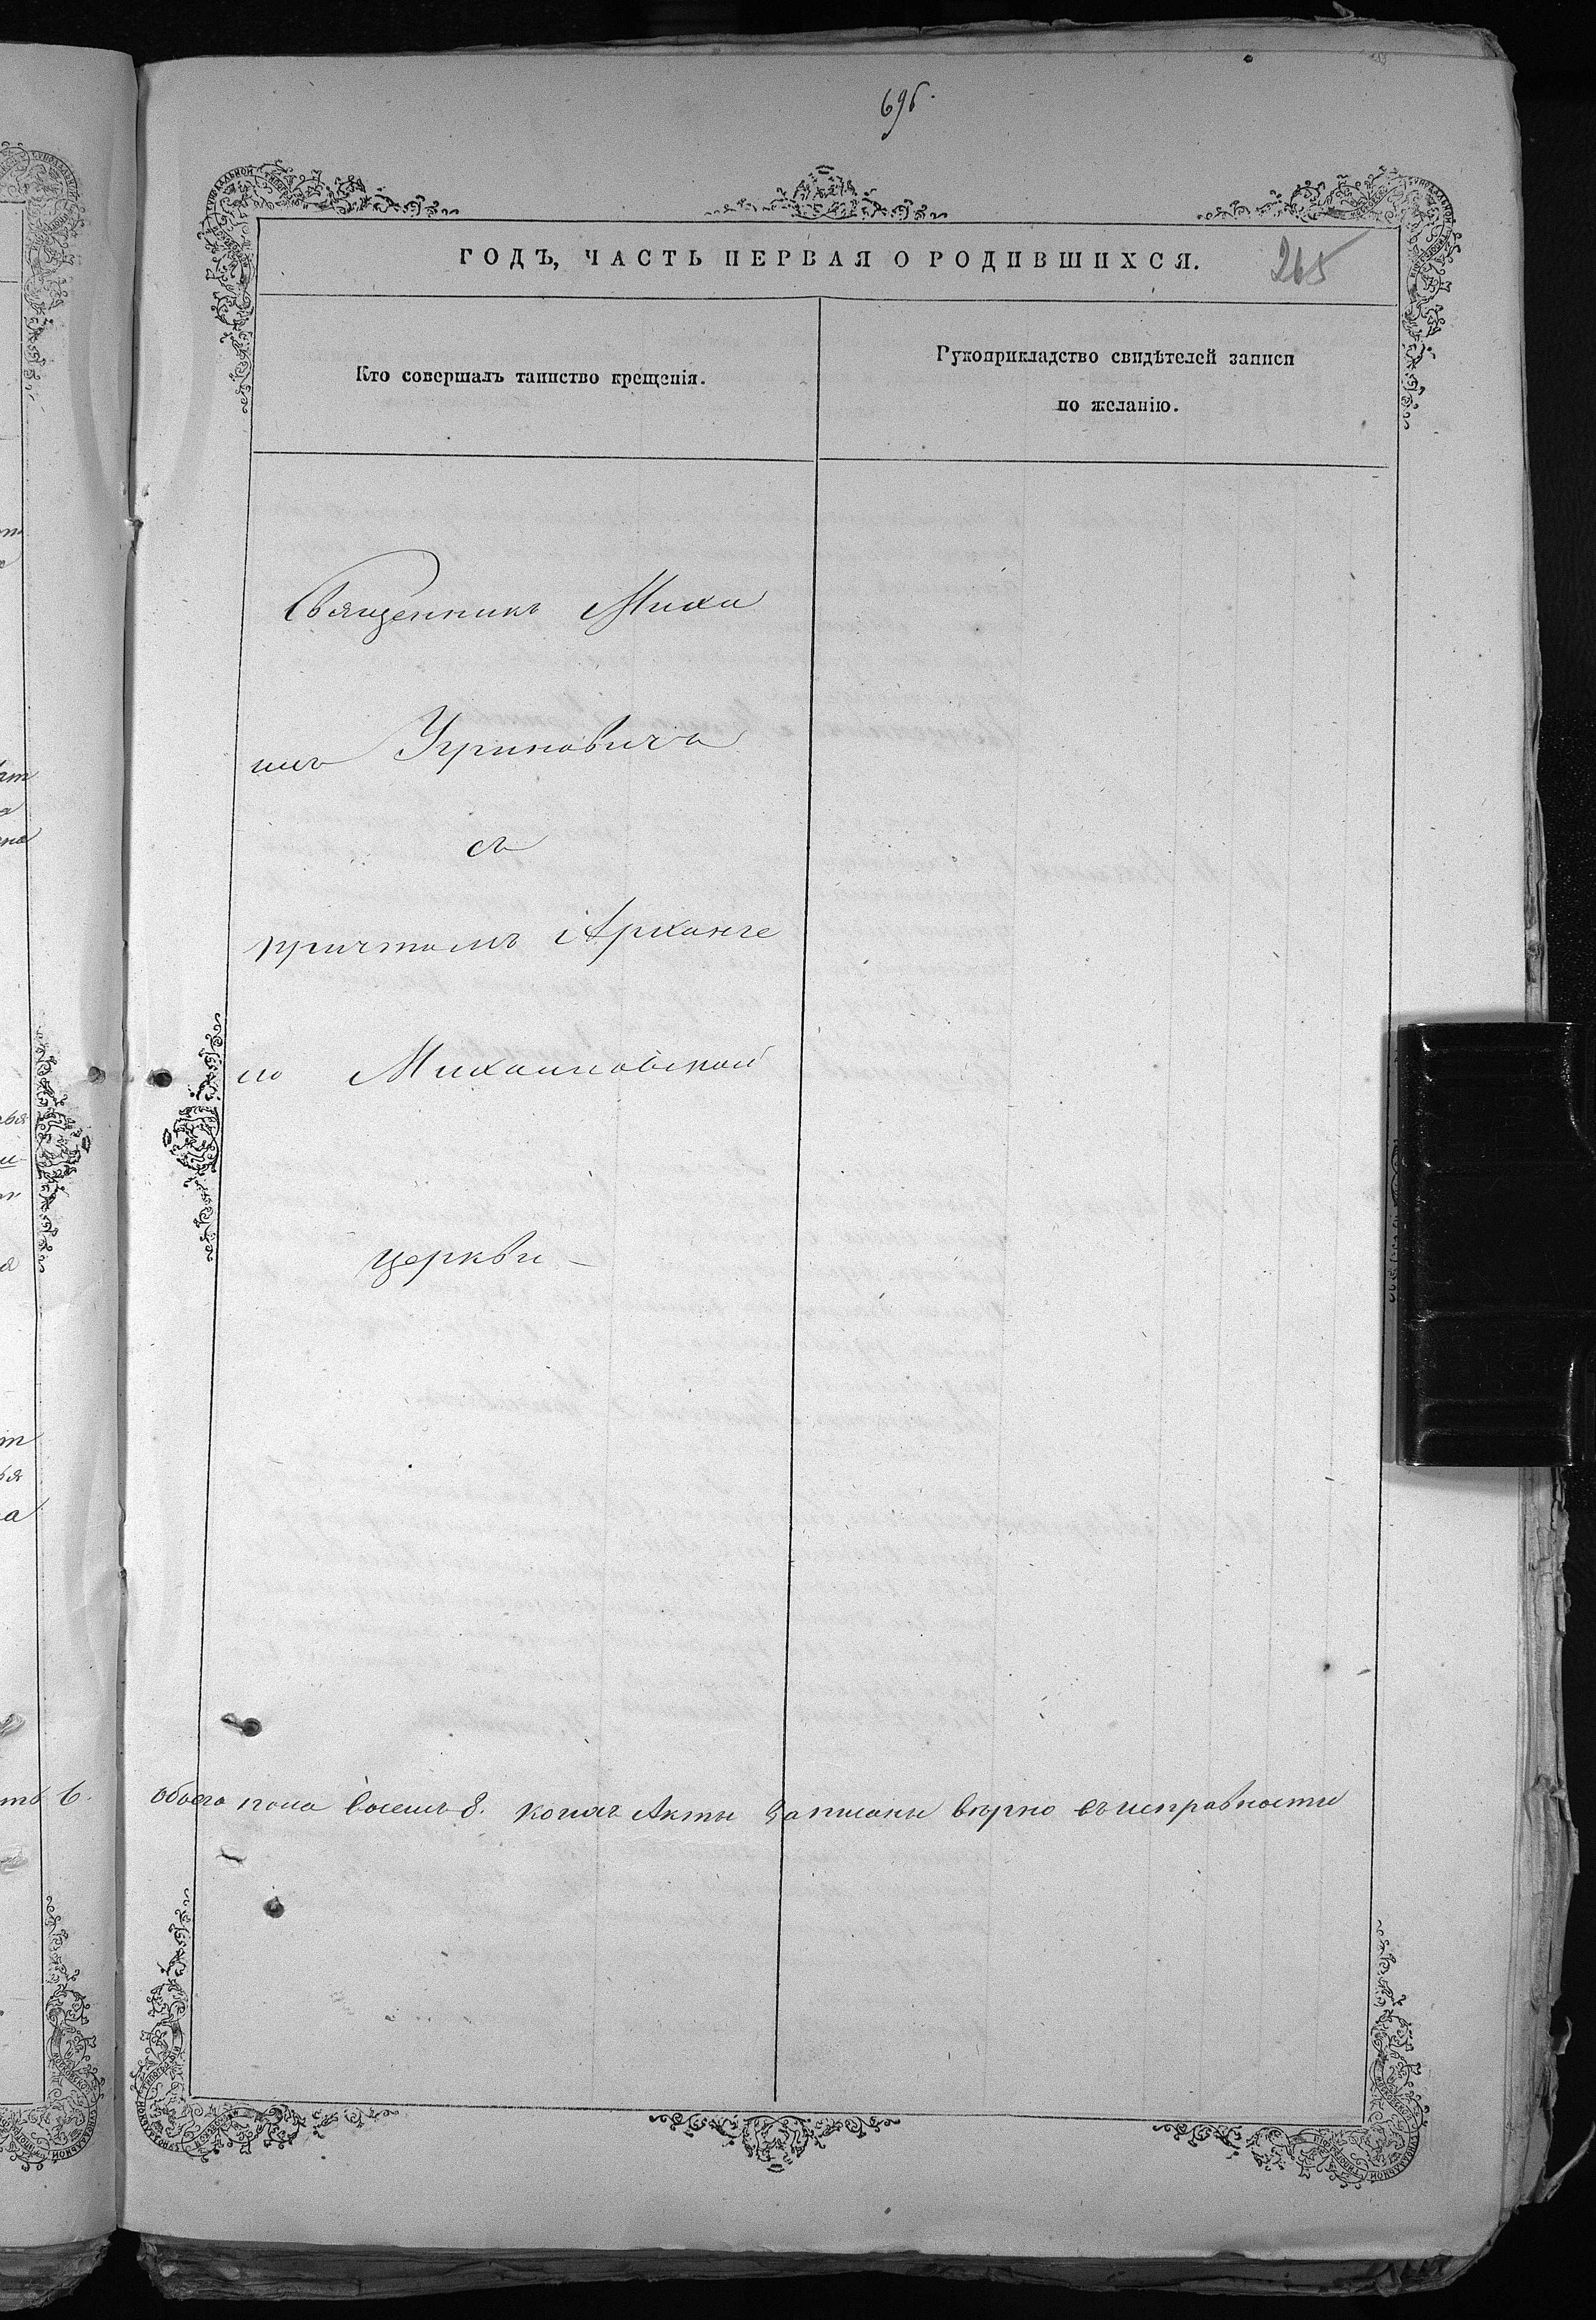 696.
ГОДЪ, ЧАСТЬ ПЕРВАЯ О РОДИВШИХСЯ.
265
Кто совершалъ таинство крещенія.
Рукоприкладство свидѣтелей записи
по желанію.
Священникъ Миха
илъ Угриновичъ
съ
причтомъ Арханге
ло Михайловской
церкви
обоего пола восемь 8. коихъ Акты записаны вѣрно въ исправности